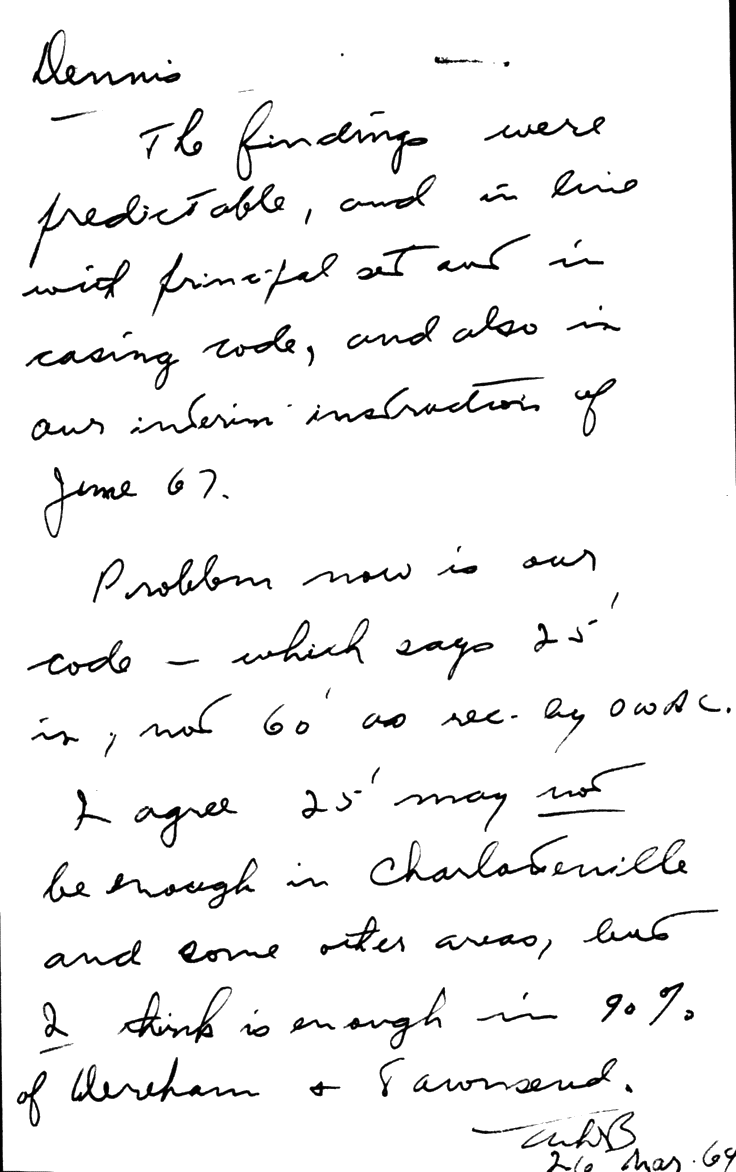 Dennis
The findings were
predictable, and in line
with principal set out in
casing code, and also in
our interim instruction of
June 67.
Problem now is our
code – which says 25'
is, not 60' as rec. by OWRC.
I agree 25' may not
be enough in Charlotteville
and some other areas, but
I think is enough in 90%
of Dereham & Townsend.
26 Mar. 69